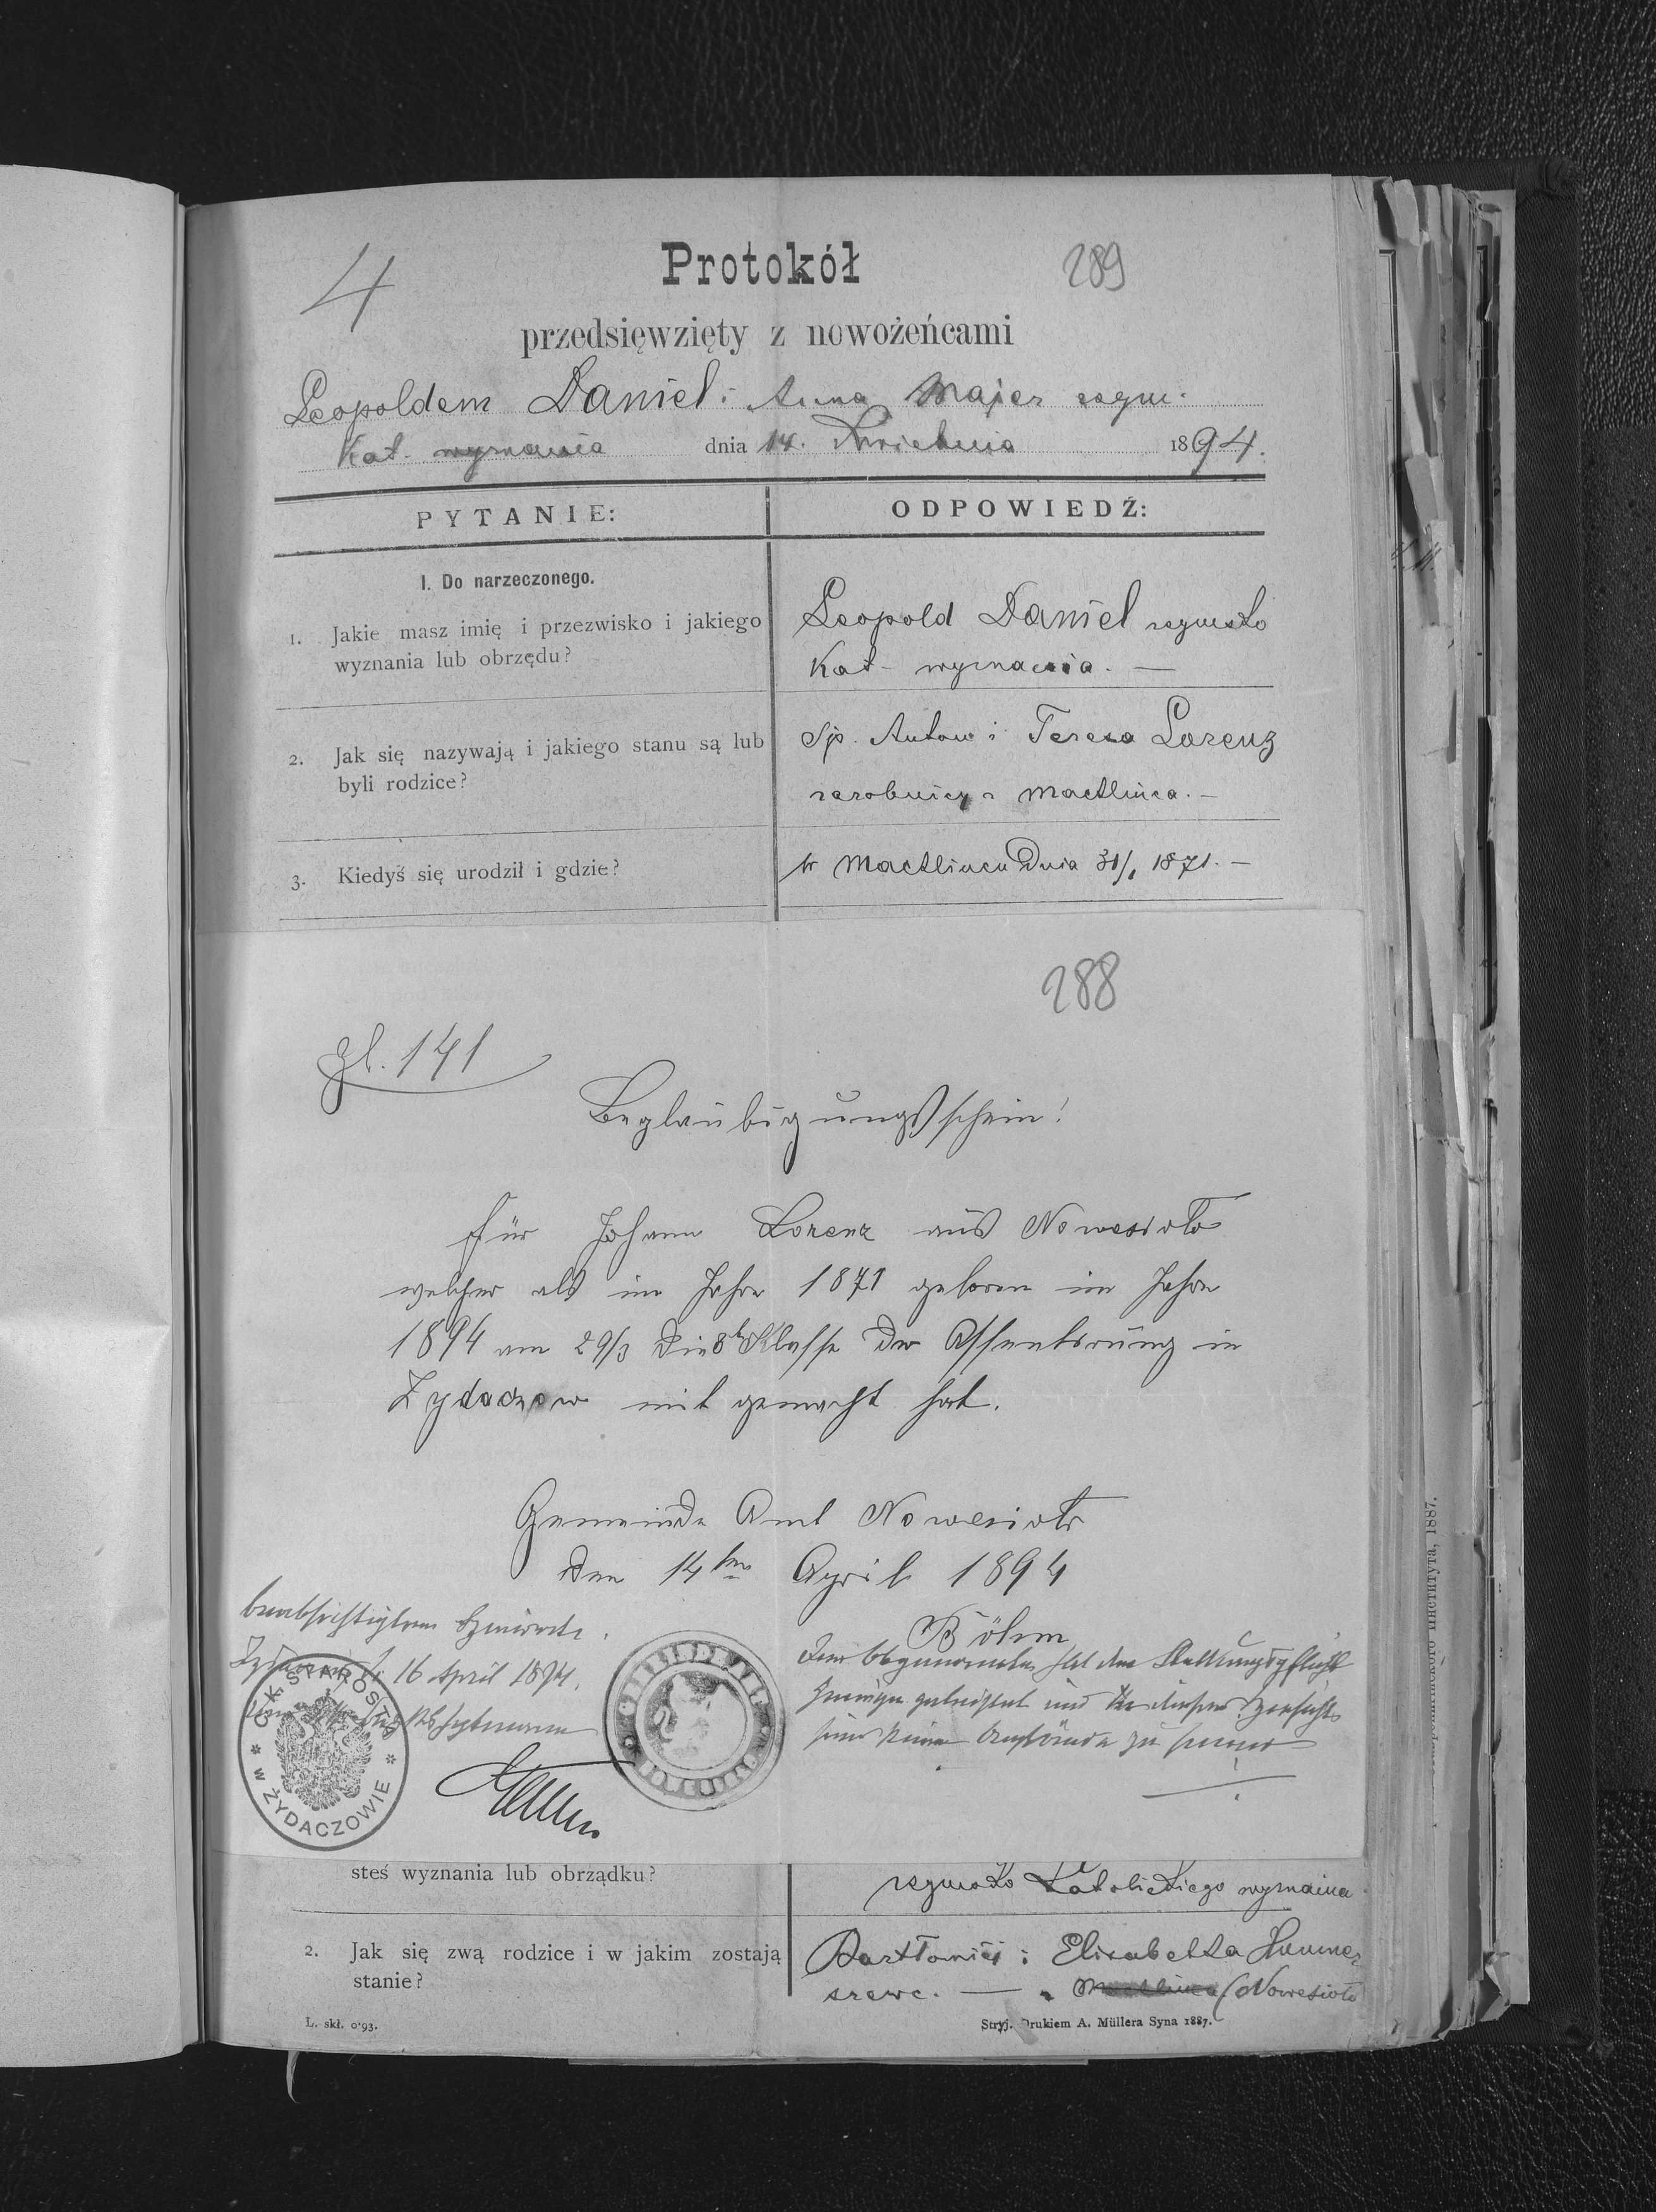 4
Protokół
289
przedsięwzięty z nowożeńcami
Leopoldem Daniel i Anna Majer rzym.
Kat. wyznania dnia 14. Kwietnia 1894.
PYTANIE:
ODPOWIEDŹ:
I. Do narzeczonego.
1. Jakie masz imię i przezwisko i jakiego
wyznania lub obrzędu?
Leopold Daniel rzymsko
Kat- wyznania. —
2. Jak się nazywają i jakiego stanu są lub
byli rodzice?
Sp. Anton i Teresa Lorenz
zarobnicy z Machlinca. —
3. Kiedyś się urodził i gdzie?
w Machlincu Dnia 31/1 1871. —
288
Zl. 141
Beglaubigungsschein!
für Johann Lorenz aus Nowesioło
welcher als im Jahre 1871 geboren im Jahre
1894 am 29/3 die 3te Klasse der Assentirung in
Zydaczow mit gemacht hat.
Gemeinde Amt Nowesioło
den 14ten April 1894
Böhm
Dem hat der Stellungspflicht
Genüge geleistet und
seine keine zu
beabsichtigten
16 April 1894.
C. K. STAROSTWO W ŻYDACZOWIE
steś wyznania lub obrządku?
rzymsko Katolickiego wyznania
2. Jak się zwą rodzice i w jakim zostają
stanie?
Bartłomiej i Elisabetta Hummer
szewc. — z Machlinca (Nowesioło
L. skł. 0·93.
Stryj. Drukiem A. Müllera Syna 1887.
института, 1887.